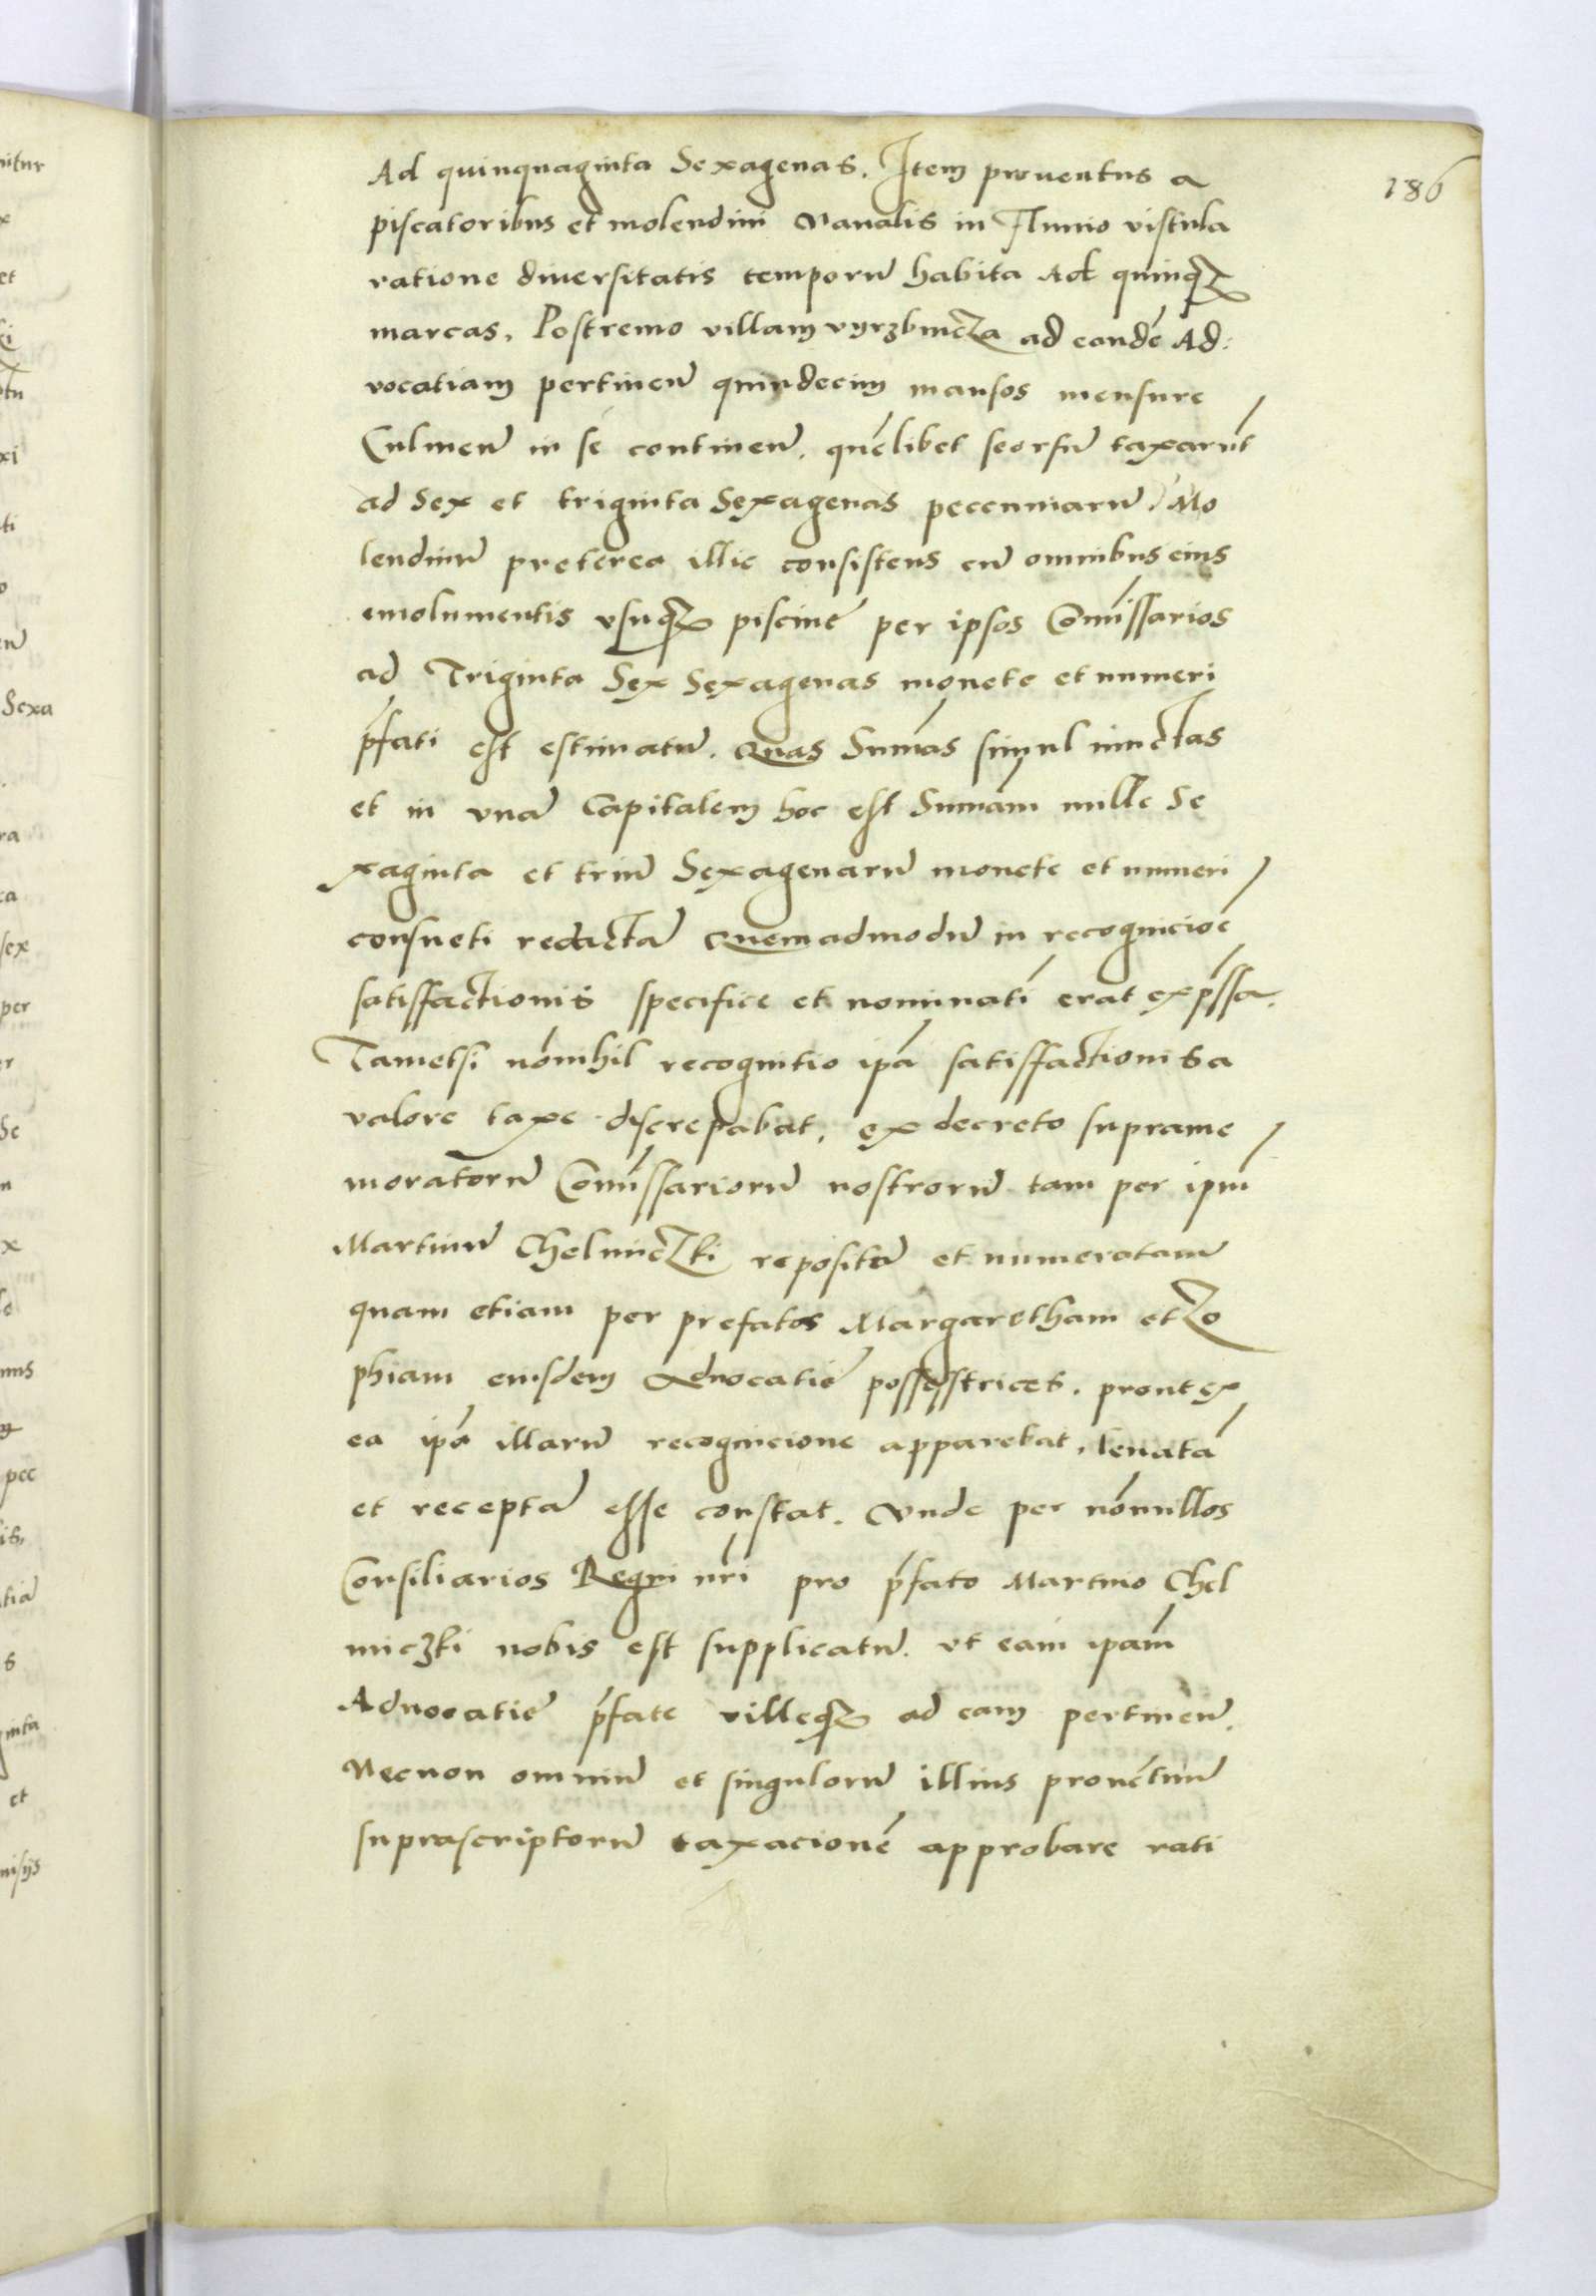 186
Ad quinquaginta Sexagenas. Item proventus a
piscatoribus et molendini Navalis in Fluuio vistula
ratione diuersitatis temporū habita Ad quinqȝ
marcas. Postremo villam vyrzbincza ad eandē Ad:
vocatiam pertinen̄ quindecim mansos mensure
Culmen̄ in se continen̄. quēlibet seorsū taxarūt
ad Sex et triginta Sexagenas pecenniarū, Mo
lendinū preterea illic consistens cū omnibus eius
emolumentis vsuqȝ piscine per ipsos Com̄issarios
ad Triginta Sex Sexagenas monete et numeri
p̄fati est estimatū. Quas Sum̄as simul iunctas
et in vnā Capitalem hoc est Sum̄am mille Se
xaginta et triū Sexagenarū monete et numeri
consueti redactā Quemadmodū in recognicioē
satisfactionis specifice et nominatī erat exp̄ssa.
Tametsi nōnihil recognitio ip̄a satisfactionis a
valore taxe discrepabat, ex decreto suprame
moratorū Com̄issariorū nostrorū tam per ip̄m
Martinū Chelmiczki repositā et numeratam
quam etiam per prefatos Margaretham et Zo
phiam eiusdem Aduocatie possestrices. prout ex
ea ip̄a illarū recognicione apparebat, leuatā
et receptā esse constat. Vnde per nōnullos
Consiliarios Regni nr̄i pro p̄fato Martino Chel
miczki nobis est supplicatū. vt eam ip̄am
Aduocatie p̄fate villeqȝ ad eam pertinen̄.
Necnon omniū et singulorū illius prouētuū
suprascriptorū taxacionē approbare rati